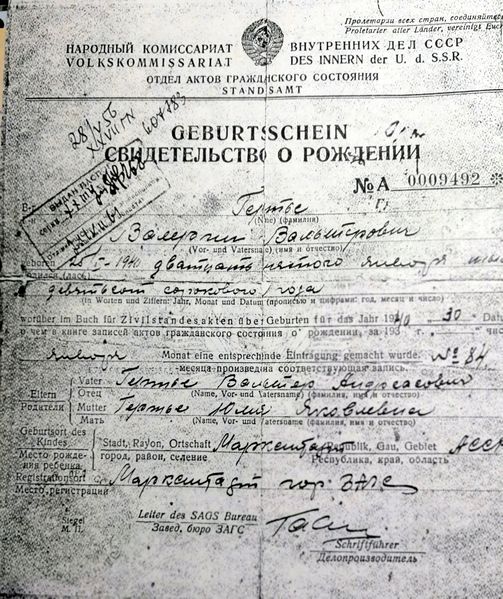 Пролетарии всех стран, соединяйтесь
Proletarier aller Länder, vereinigt Euch
НАРОДНЫЙ КОМИССАРИАТ ВНУТРЕННИХ ДЕЛ СССР
VOLKSKOMMISSARIAT DES INNERN der U. d. S.S.R.
ОТДЕЛ АКТОВ ГРАЖДАНСКОГО СОСТОЯНИЯ
STANDSAMT
GEBURTSSCHEIN
СВИДЕТЕЛЬСТВО О РОЖДЕНИИ
№ А 0009492
Гертье
(Name) (фамилия)
Валерий Вальтерович
(Vor- und Vatersname) (имя и отчество)
25/I-1940 двадцать пятого января
девятьсот сорокового года
(in Worten und Ziffern: Jahr, Monat und Datum) (прописью и цифрами: год, месяц и число)
worüber im Buch für Zivilstandesakten über Geburten für das Jahr 1940 30 Datum
о чем в книге записей актов гражданского состояния о рождении, за 193 г. числа
января Monat eine entsprechende Eintragung gemacht wurde. № 84
месяца произведена соответствующая запись.
Vater Гертье Вальтер Андреасович
Eltern Отец (Name, Vor- und Vatersname) (фамилия, имя и отчество)
Родители Mutter Гертье Юлия Яковлевна
Мать (Name, Vor- und Vatersname) (фамилия, имя и отчество)
Geburtsort des Kindes Stadt, Rayon, Ortschaft Марксштадт Republik, Gau, Gebiet АССР
Место рождения ребенка город, район, селение Республика, край, область
Registrationsort Марксштадт гор. ЗАГС
Место регистрации
Siegel Leiter des SAGS Bureau
М. П. Завед. бюро ЗАГС
Schriftführer
Делопроизводитель